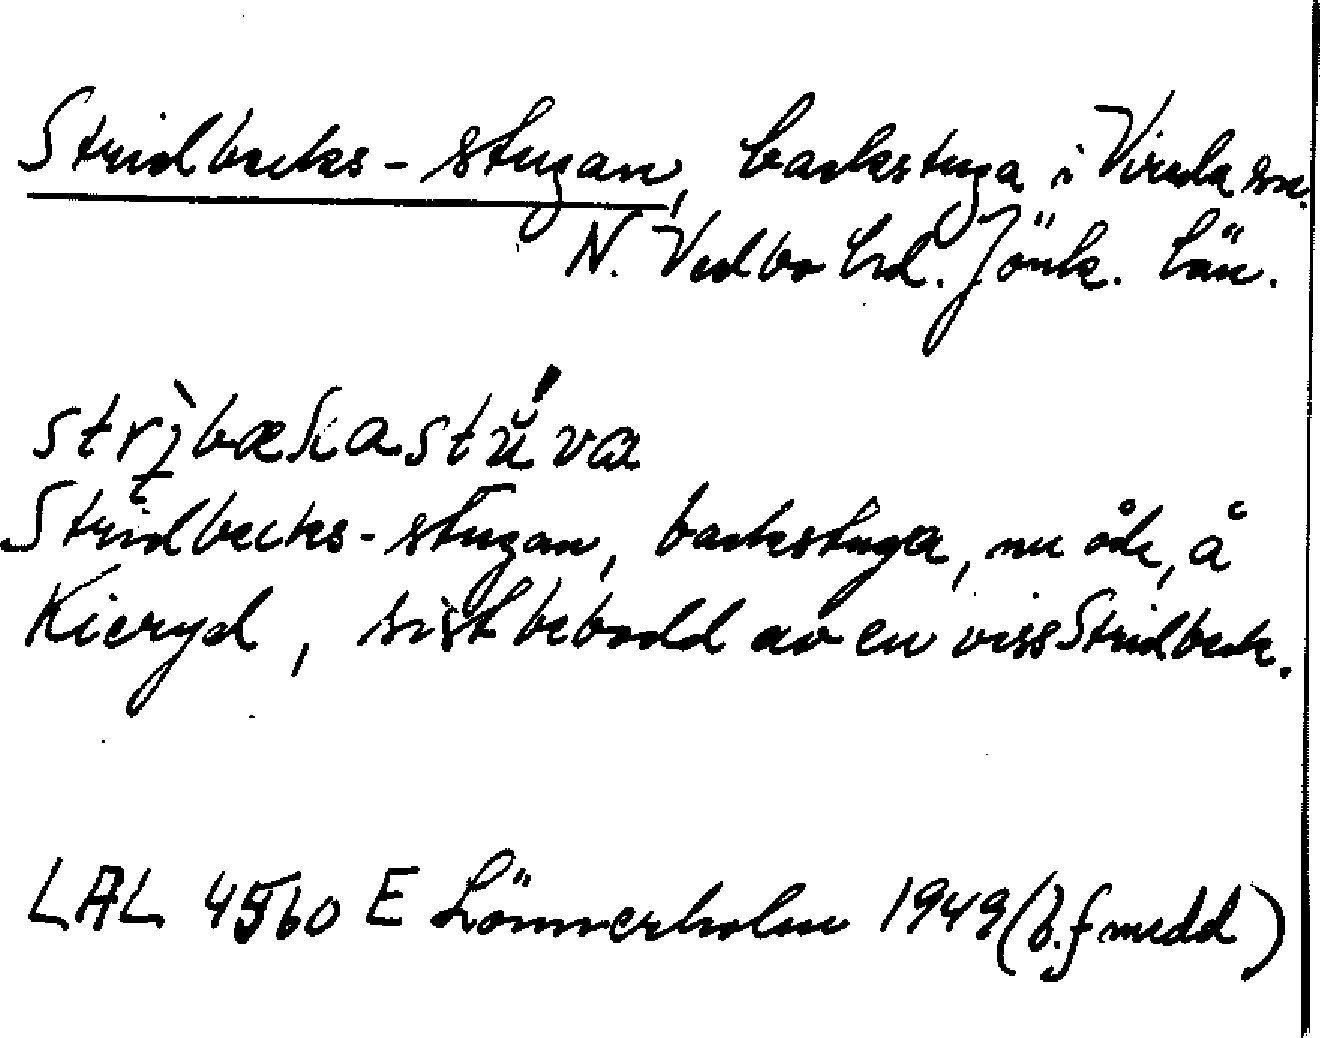 Stridbecks-stugan, backstuga i Vireda sn.
N. Vedbo hd. Jönk. län.
Stridbecks-stugan, backstuga, nu öde, å
Kieryd, sist bebodd av en viss Stridbeck.
LAL 4560 E Lönnerholm 1949 (b.f medd)